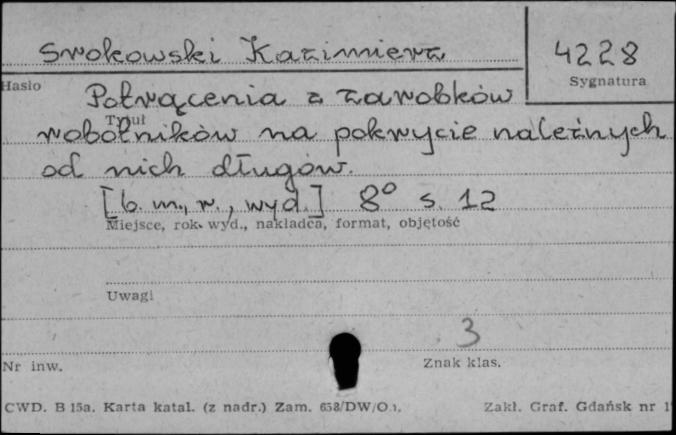 Srokowski Kazimierz
4228
Hasło
Sygnatura
Potrącenia z zarobków
Tytuł
robotników na pokrycie należnych
od nich długów.
[b. m., r., wyd.] 8° s. 12
Miejsce, rok wyd., nakładca, format, objętość
Uwagi
3
Nr inw.
Znak klas.
CWD. B 15a. Karta katal. (z nadr.) Zam. 658/DW/O
Zakł. Graf. Gdańsk nr